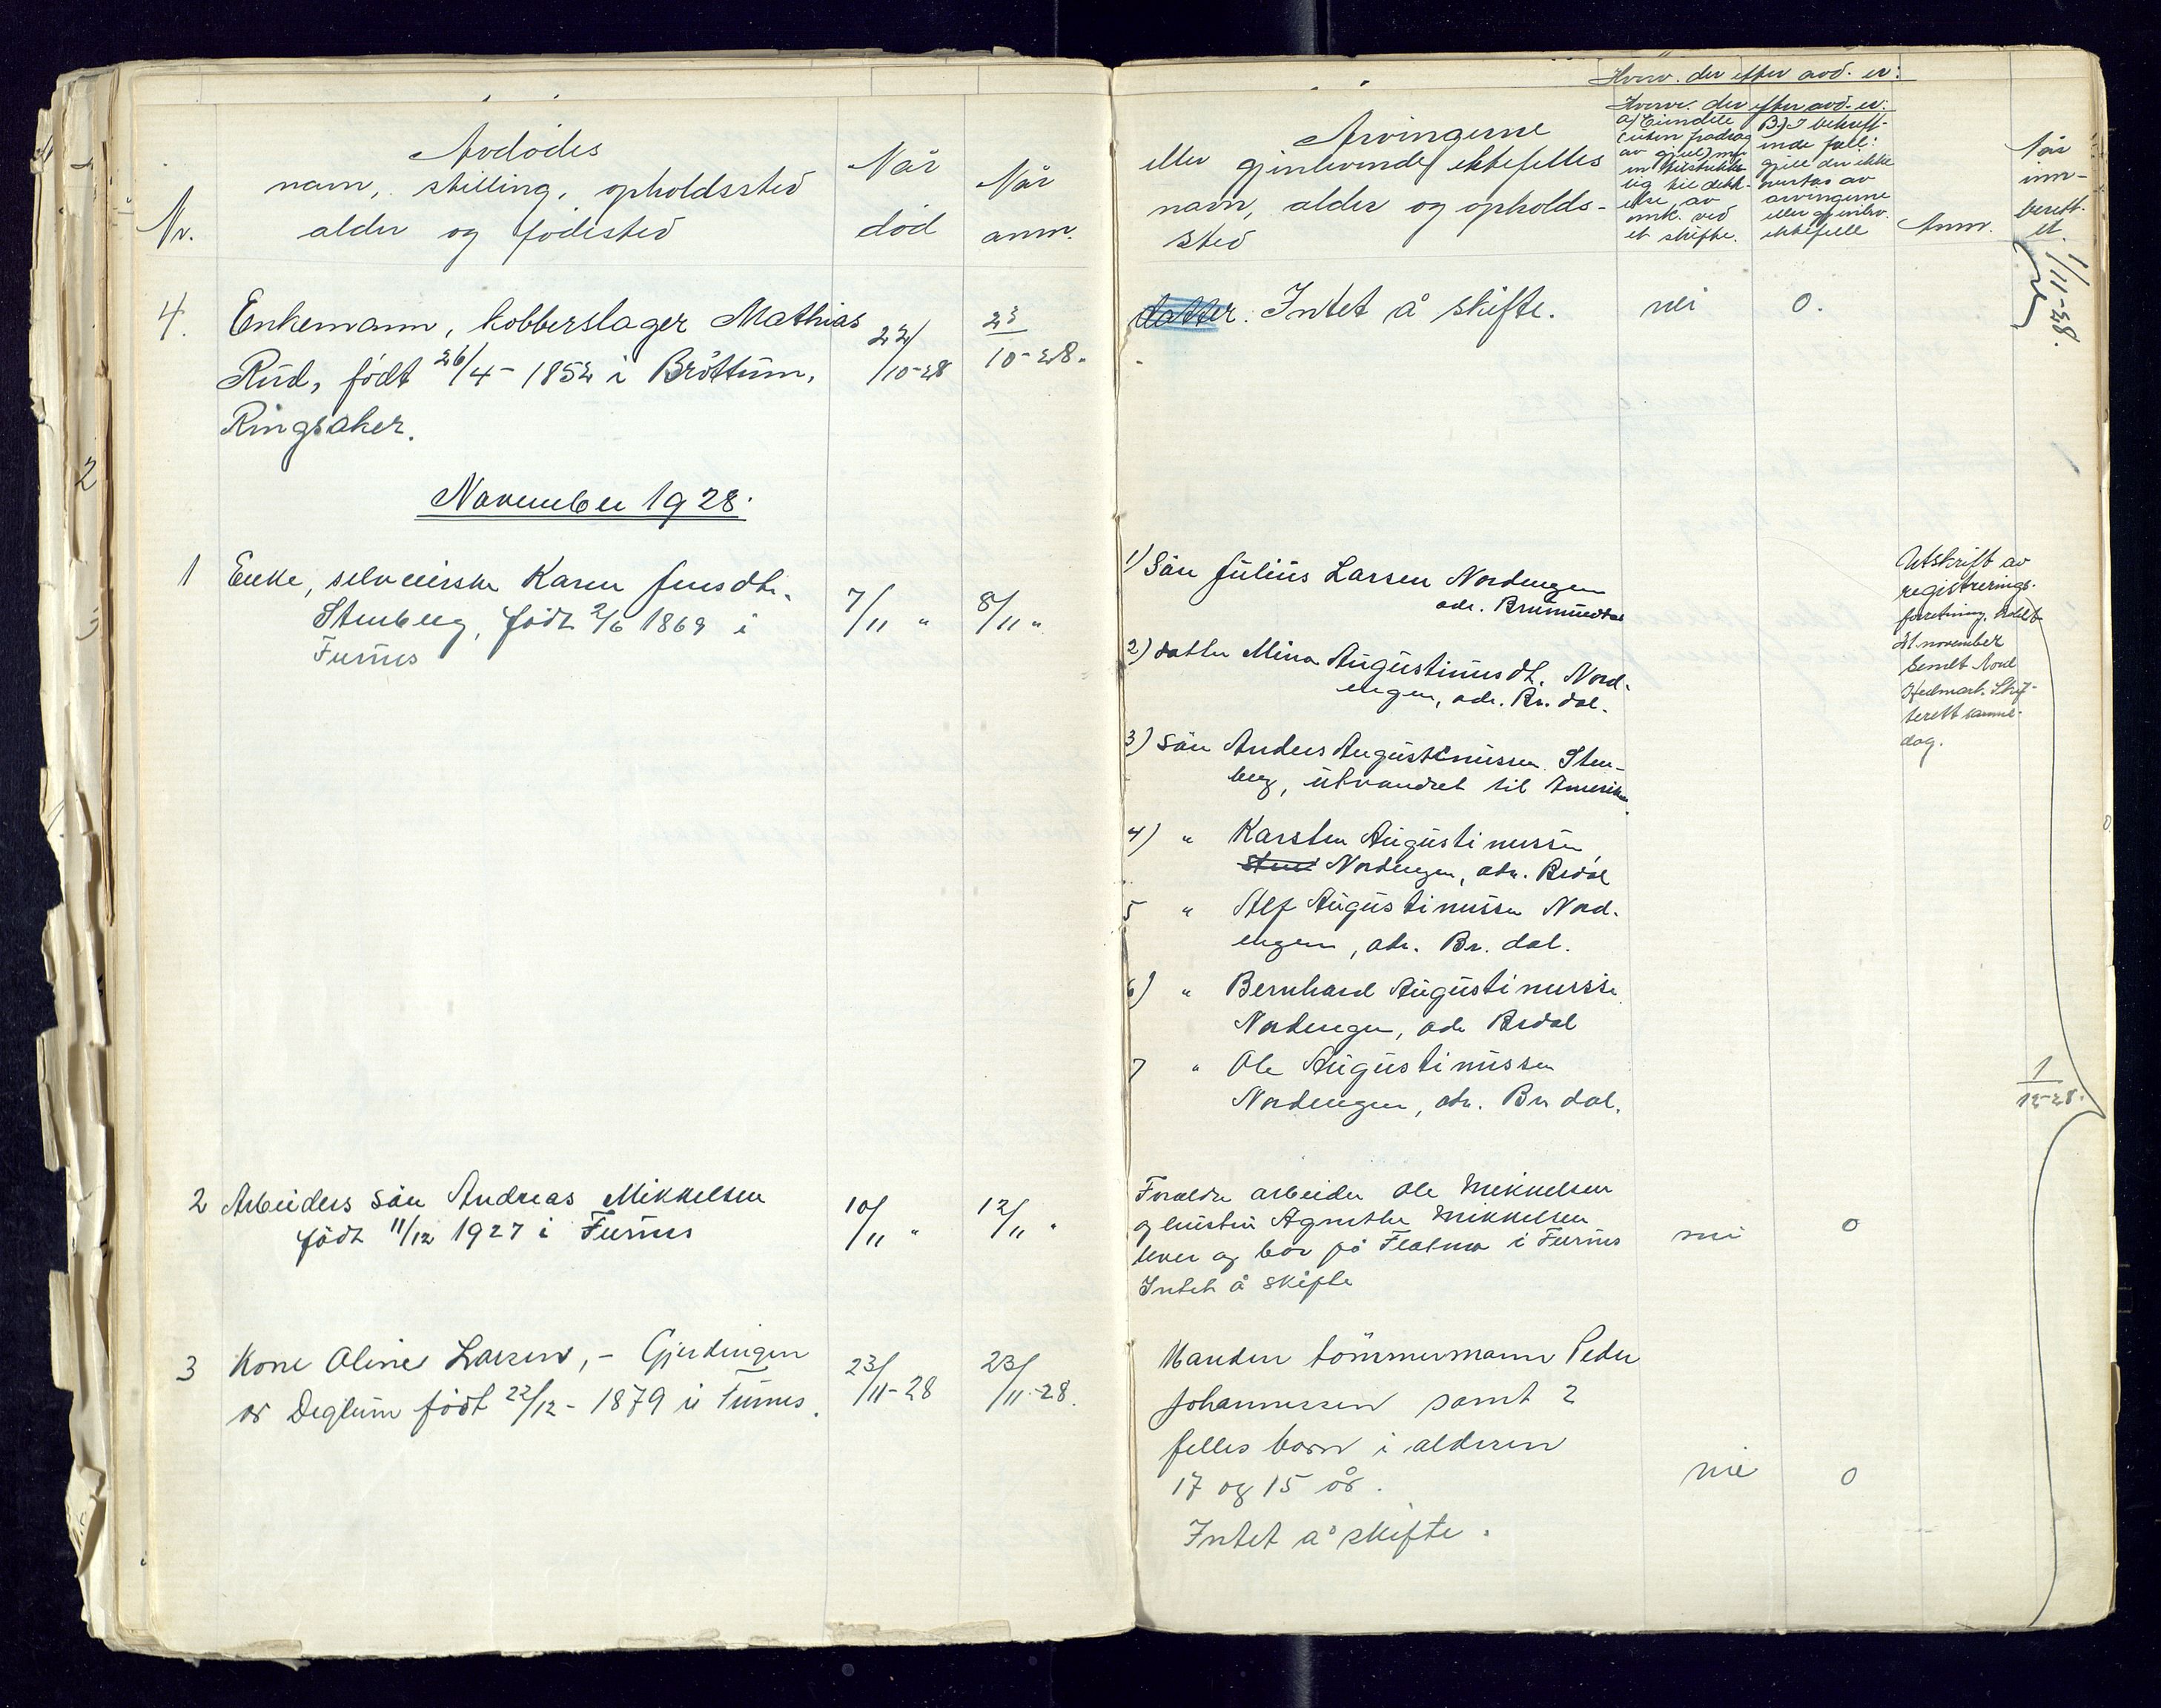 Avdødes
navn, stilling, opholdssted
alder og fødested
Nr.
Når
død
Når
anm.
4. Enkemann, kobberslager Mathias
Rud, født 26/4-1852 i Brøttum,
Ringsaker.
22/10-28
23/10-28.
November 1928.
1 Enke, selveierske Karen Jensdtr.
Stenberg, født 2/6 1869 i
Furnes
7/11 "
8/11 "
2 Arbeiders sön Andreas Mikkelsen
født 11/12 1927 i Furnes
10/11 "
12/11 "
3 Kone Oline Larsen, - Gjerdingen
av Deglum født 22/12-1879 i Furnes.
23/11-28
23/11-28.
Hvorv. der efter avd. er:
Arvingerne
eller gjenlevende ektefelles
navn, alder og opholds-
sted
Hvorv. der efter avd. er:
a) Eiendele
(uten fradrag
av gjeld) mer
enn tilstrekke-
lig til dekk-
else av
omk. ved
et skifte.
B) I bekreft-
inde fall:
gjeld der ikke
overtas av
arvingerne
eller gjenlev.
ektefelle
Anm.
Når
inn-
berett-
et.
datter. Intet å skifte.
nei
0.
1/11-28.
1) Sön Julius Larsen Nordengen
adr. Brumunddal
2) datter Mina Augustinusdt. Nord-
engen, adr. Br. dal.
3) sön Anders Augustinussen Sten-
berg, utvandret til Amerika.
4) " Karsten Augustinussen,
Sten Nordengen, adr. Brdal
5 " Alf Augustinussen Nord-
engen, adr. Br. dal.
6) " Bernhard Augustinussen
Nordengen, adr Brdal
7 " Ole Augustinussen
Nordengen, adr. Br dal.
Utskrift av
registrerings-
forretning holdt
21 november
sendt Nord
Hedmark Skif-
terett samme
dag.
1/12-28.
Foreldre arbeider Ole Mikkelsen
og hustru Agnethe Mikkelsen
lever og bor på Flatmo i Furnes
Intet å skifte
nei
0
Manden tömmermann Peder
Johannessen samt 2
felles barn i alderen
17 og 15 år.
Intet å skifte.
nei
0